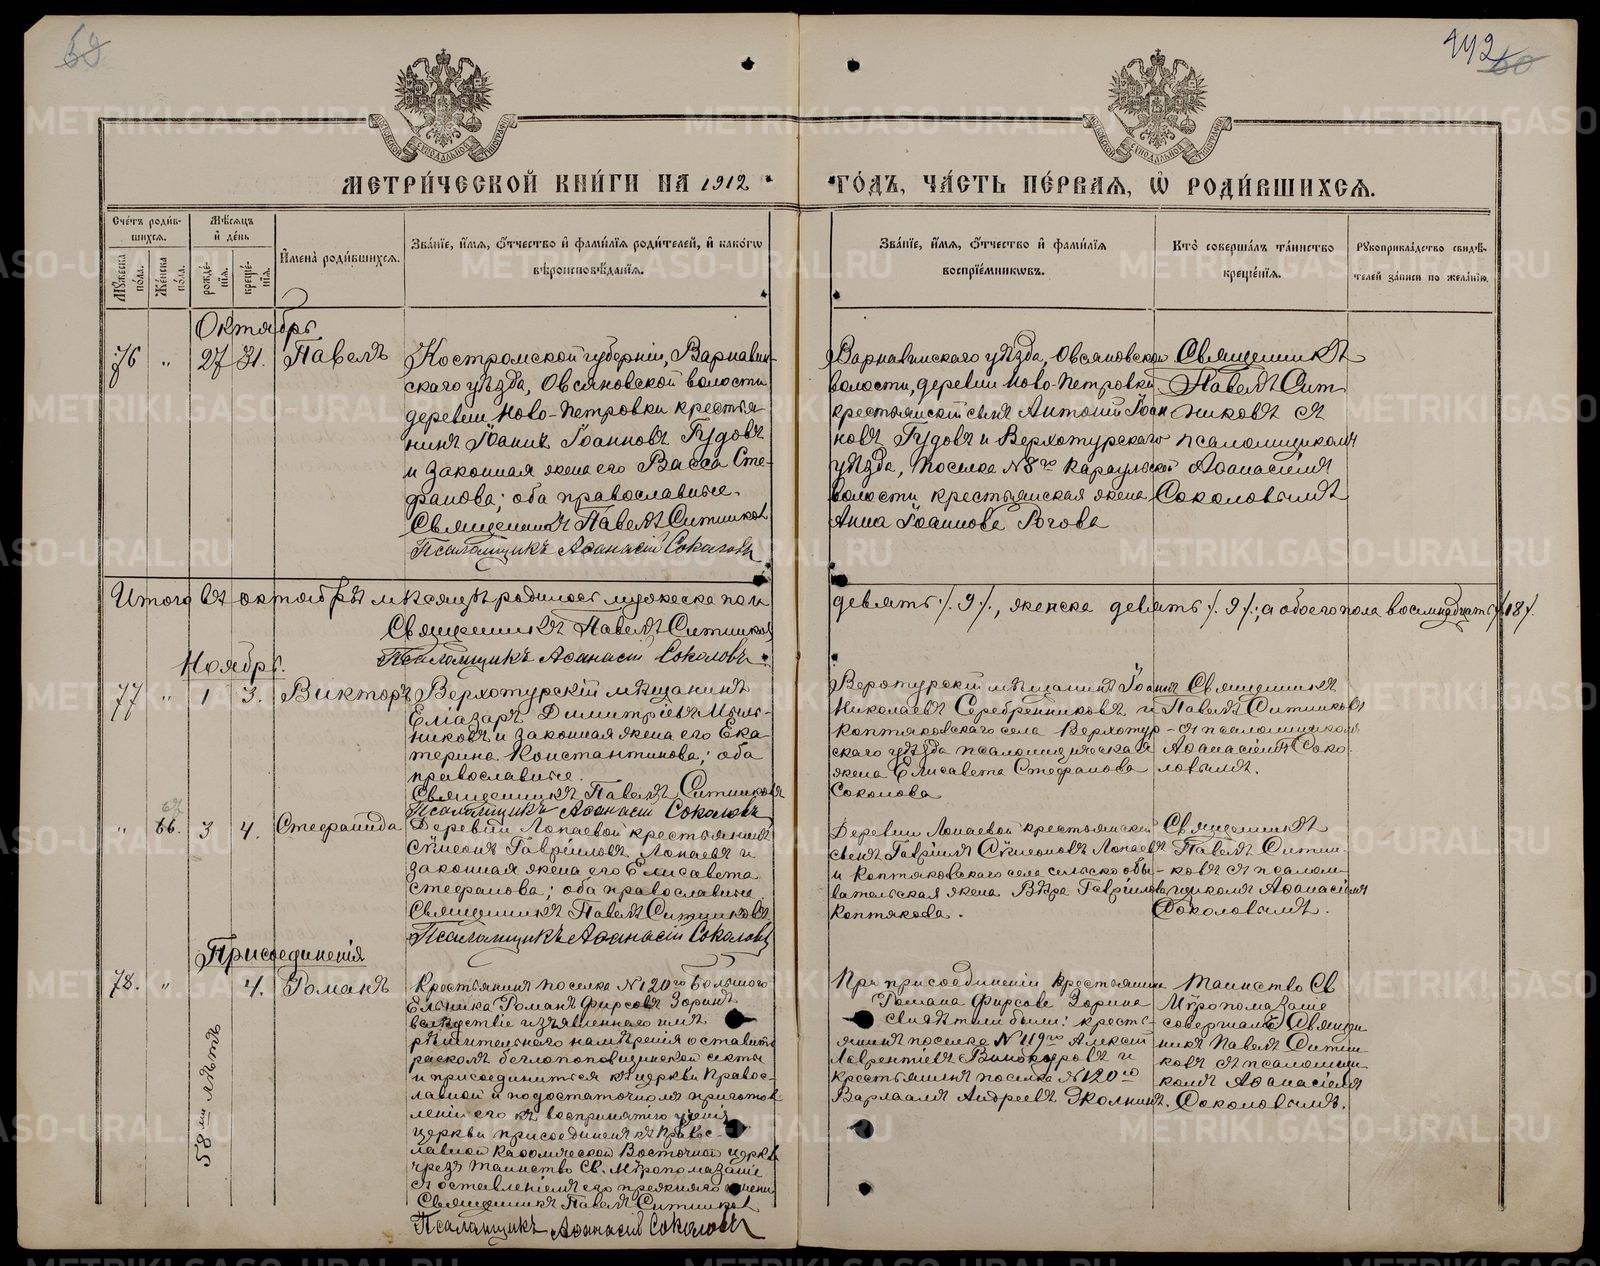 60
192
60
МЕТРИ́ЧЕСКОЙ КНИ́ГИ НА 1912
ГО́ДЪ, ЧА́СТЬ ПЕ́РВАѦ, Ѡ РОДИ́ВШИХСѦ.
Сче́тъ роди́в-
шихсѧ.
Мѣ́сѧцъ
и҆ де́нь
Мꙋ́жеска по́ла.
Же́нска по́ла.
рожде́-
нїѧ.
креще́-
нїѧ.
И҆мена̀ роди́вшихсѧ.
Зва́нїе, и҆́мѧ, ѻ҆́тчество и҆ фами́лїѧ роди́телей, и҆ како́гѡ
вѣроисповѣ́данїѧ.
Зва́нїе, и҆́мѧ, ѻ҆́тчество и҆ фами́лїѧ
воспрїе́мникѡвъ.
Кто̀ соверша́лъ та́инство
креще́нїѧ.
Рꙋкоприкла́дство свидѣ́-
телей за́писи по жела́нїю.
Октябрь
76 " 27 31. Павелъ
Костромской губерніи, Варнавин-
скаго уѣзда, Овсяновской волости
деревни Ново-Петровки крестья
нинъ Іоаннъ Іоанновъ Гудовъ
и законная жена его Васса Сте-
фанова; оба православные.
Священникъ Павелъ Ситниковъ
Псаломщикъ Аѳанасій Соколовъ
Варнавинскаго уѣзда, Овсяновской
волости, деревни Ново-Петровки
крестьянскій сынъ Антоній Іоан
новъ Гудовъ и Верхотурскаго
уѣзда, поселка №8го Караульской
волости крестьянская жена
Анна Іоаннова Рогова
Священникъ
Павелъ Сит
никовъ съ
псаломщикомъ
Аѳанасіемъ
Соколовымъ
Итого въ октябрѣ мѣсяцѣ родилось мужеска пола
девять /9/, женска девять /9/; а обоего пола восемнадцать /18/.
Священникъ Павелъ Ситниковъ
Псаломщикъ Аѳанасій Соколовъ
Ноябрь.
77 " 1 3. Викторъ
Верхотурскій мѣщанинъ
Елазаръ Димитріевъ Мыль-
никовъ и законная жена его Ека-
терина Константинова; оба
православные.
Священникъ Павелъ Ситниковъ
Псаломщикъ Аѳанасій Соколовъ
Веротурскій мѣщанинъ Іоаннъ
Николаевъ Серебренниковъ и
Коптяковскаго села Верхотур-
скаго уѣзда псаломщическая
жена Елисавета Стефанова
Соколова
Священникъ
Павелъ Ситниковъ
съ псаломщикомъ
Аѳанасіемъ Соко-
ловымъ.
67
" 66. 3 4. Стефанида
Деревни Лопаевой крестьянинъ
Сѵмеонъ Гавріиловъ Лопаевъ и
законная жена его Елисавета
Стефанова; оба православные
Священникъ Павелъ Ситниковъ
Псаломщикъ Аѳанасій Соколовъ
Деревни Лопаевой крестьянскій
сынъ Гавріилъ Сѵмеоновъ Лопаевъ
и Коптяковскаго села сельско обы-
вательская жена Вѣра Гавріилова
Коптякова.
Священникъ
Павелъ Ситни-
ковъ съ псалом-
щикомъ Аѳанасіемъ
Соколовымъ.
Присоединенія
78. " 4. Романъ
58ми лѣтъ
Крестьянинъ поселка №120го Большого
Ельника Романъ Фирсовъ Зоринъ
вслѣдствіе изъявленнаго имъ
рѣшительнаго намѣренія оставить
расколъ бѣглопоповщинской секты
и присоединиться къ церкви Правос-
лавной и подостаточномъ приготов
леніи его къ воспринятію ученія
церкви присоединенъ къ Правос-
лавной Каѳолической Восточной церкви
чрезъ таинство Св. Мѵропомазаніе
съ оставленіемъ его прежняго имени
Священникъ Павелъ Ситниковъ
Псаломщикъ Аѳанасій Соколовъ
При присоединеніи крестьянина
Романа Фирсова Зорина
свидѣтели были: кресть-
янинъ поселка №119го Алексій
Лаврентіевъ Винокуровъ и
крестьянинъ поселка №120го
Варлаамъ Андреевъ Жолнинъ.
Таинство Св
Мѵропомазаніе
совершалъ Священ
никъ Павелъ Ситни
ковъ съ псаломщи
комъ Аѳанасіемъ
Соколовымъ.
METRIKI.GASO-URAL.RU